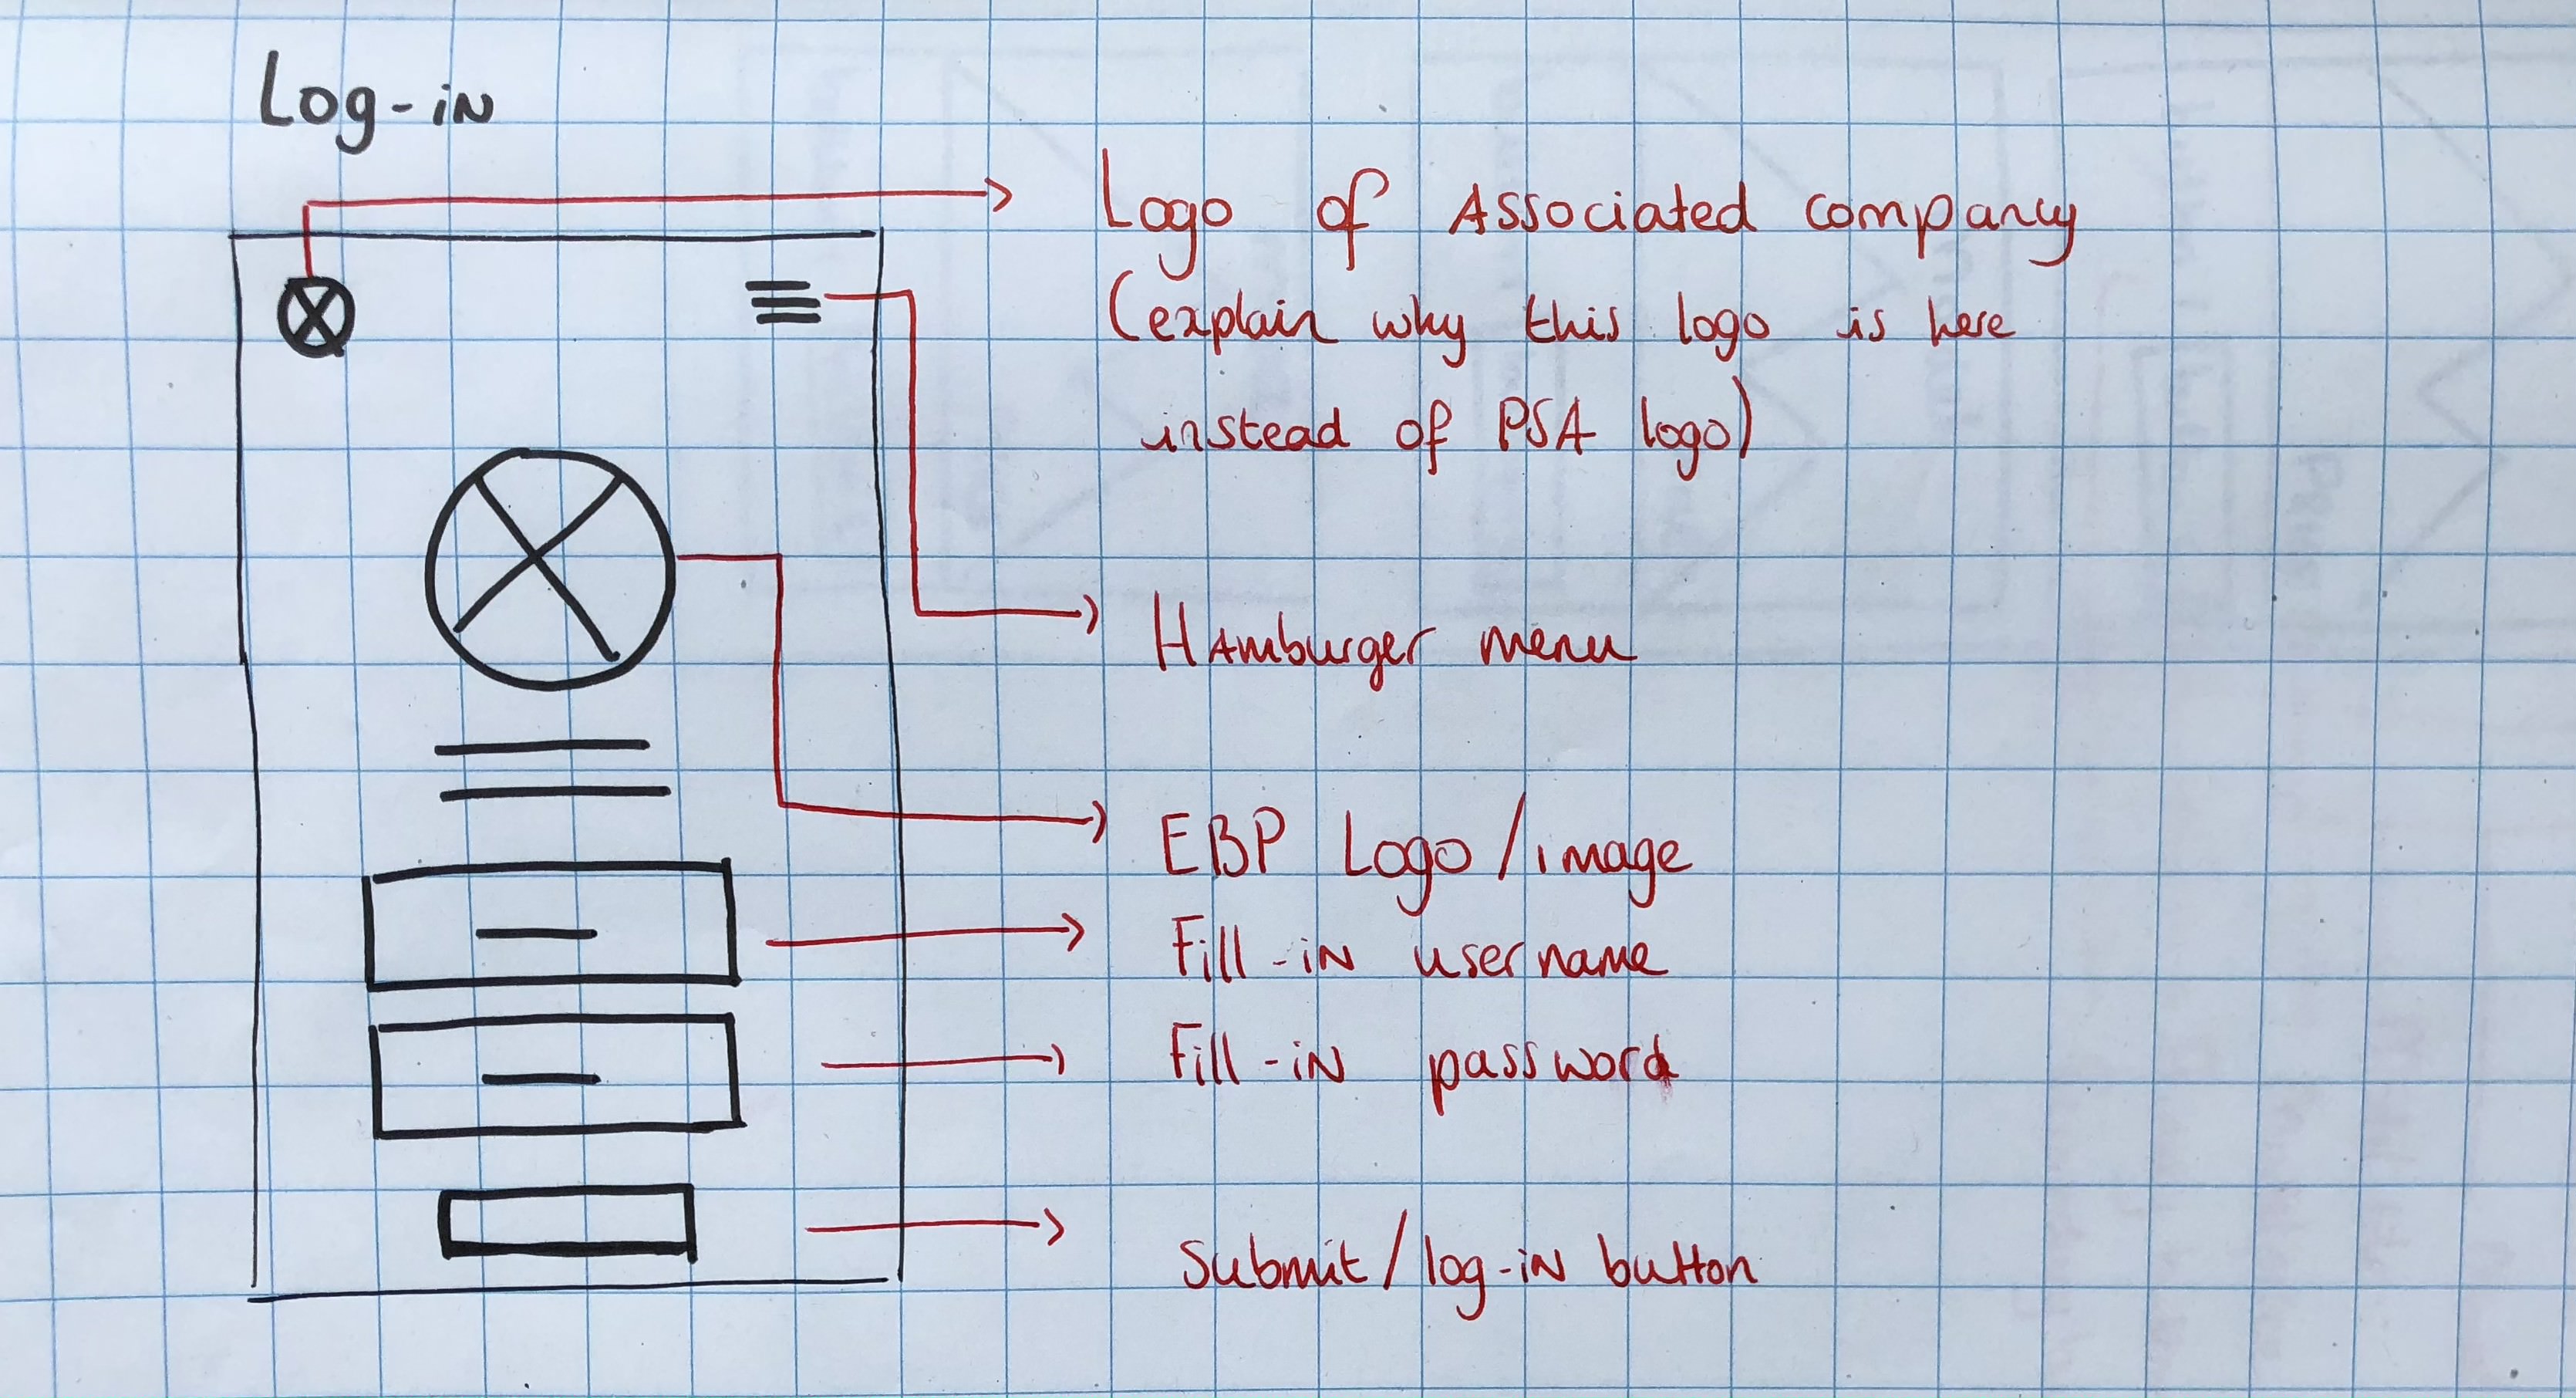 Log-in
Logo of Associated company
(explain why this logo is here
instead of PSA logo)
Hamburger menu
EBP Logo/image
Fill-in username
Fill-in password
Submit/log-in button